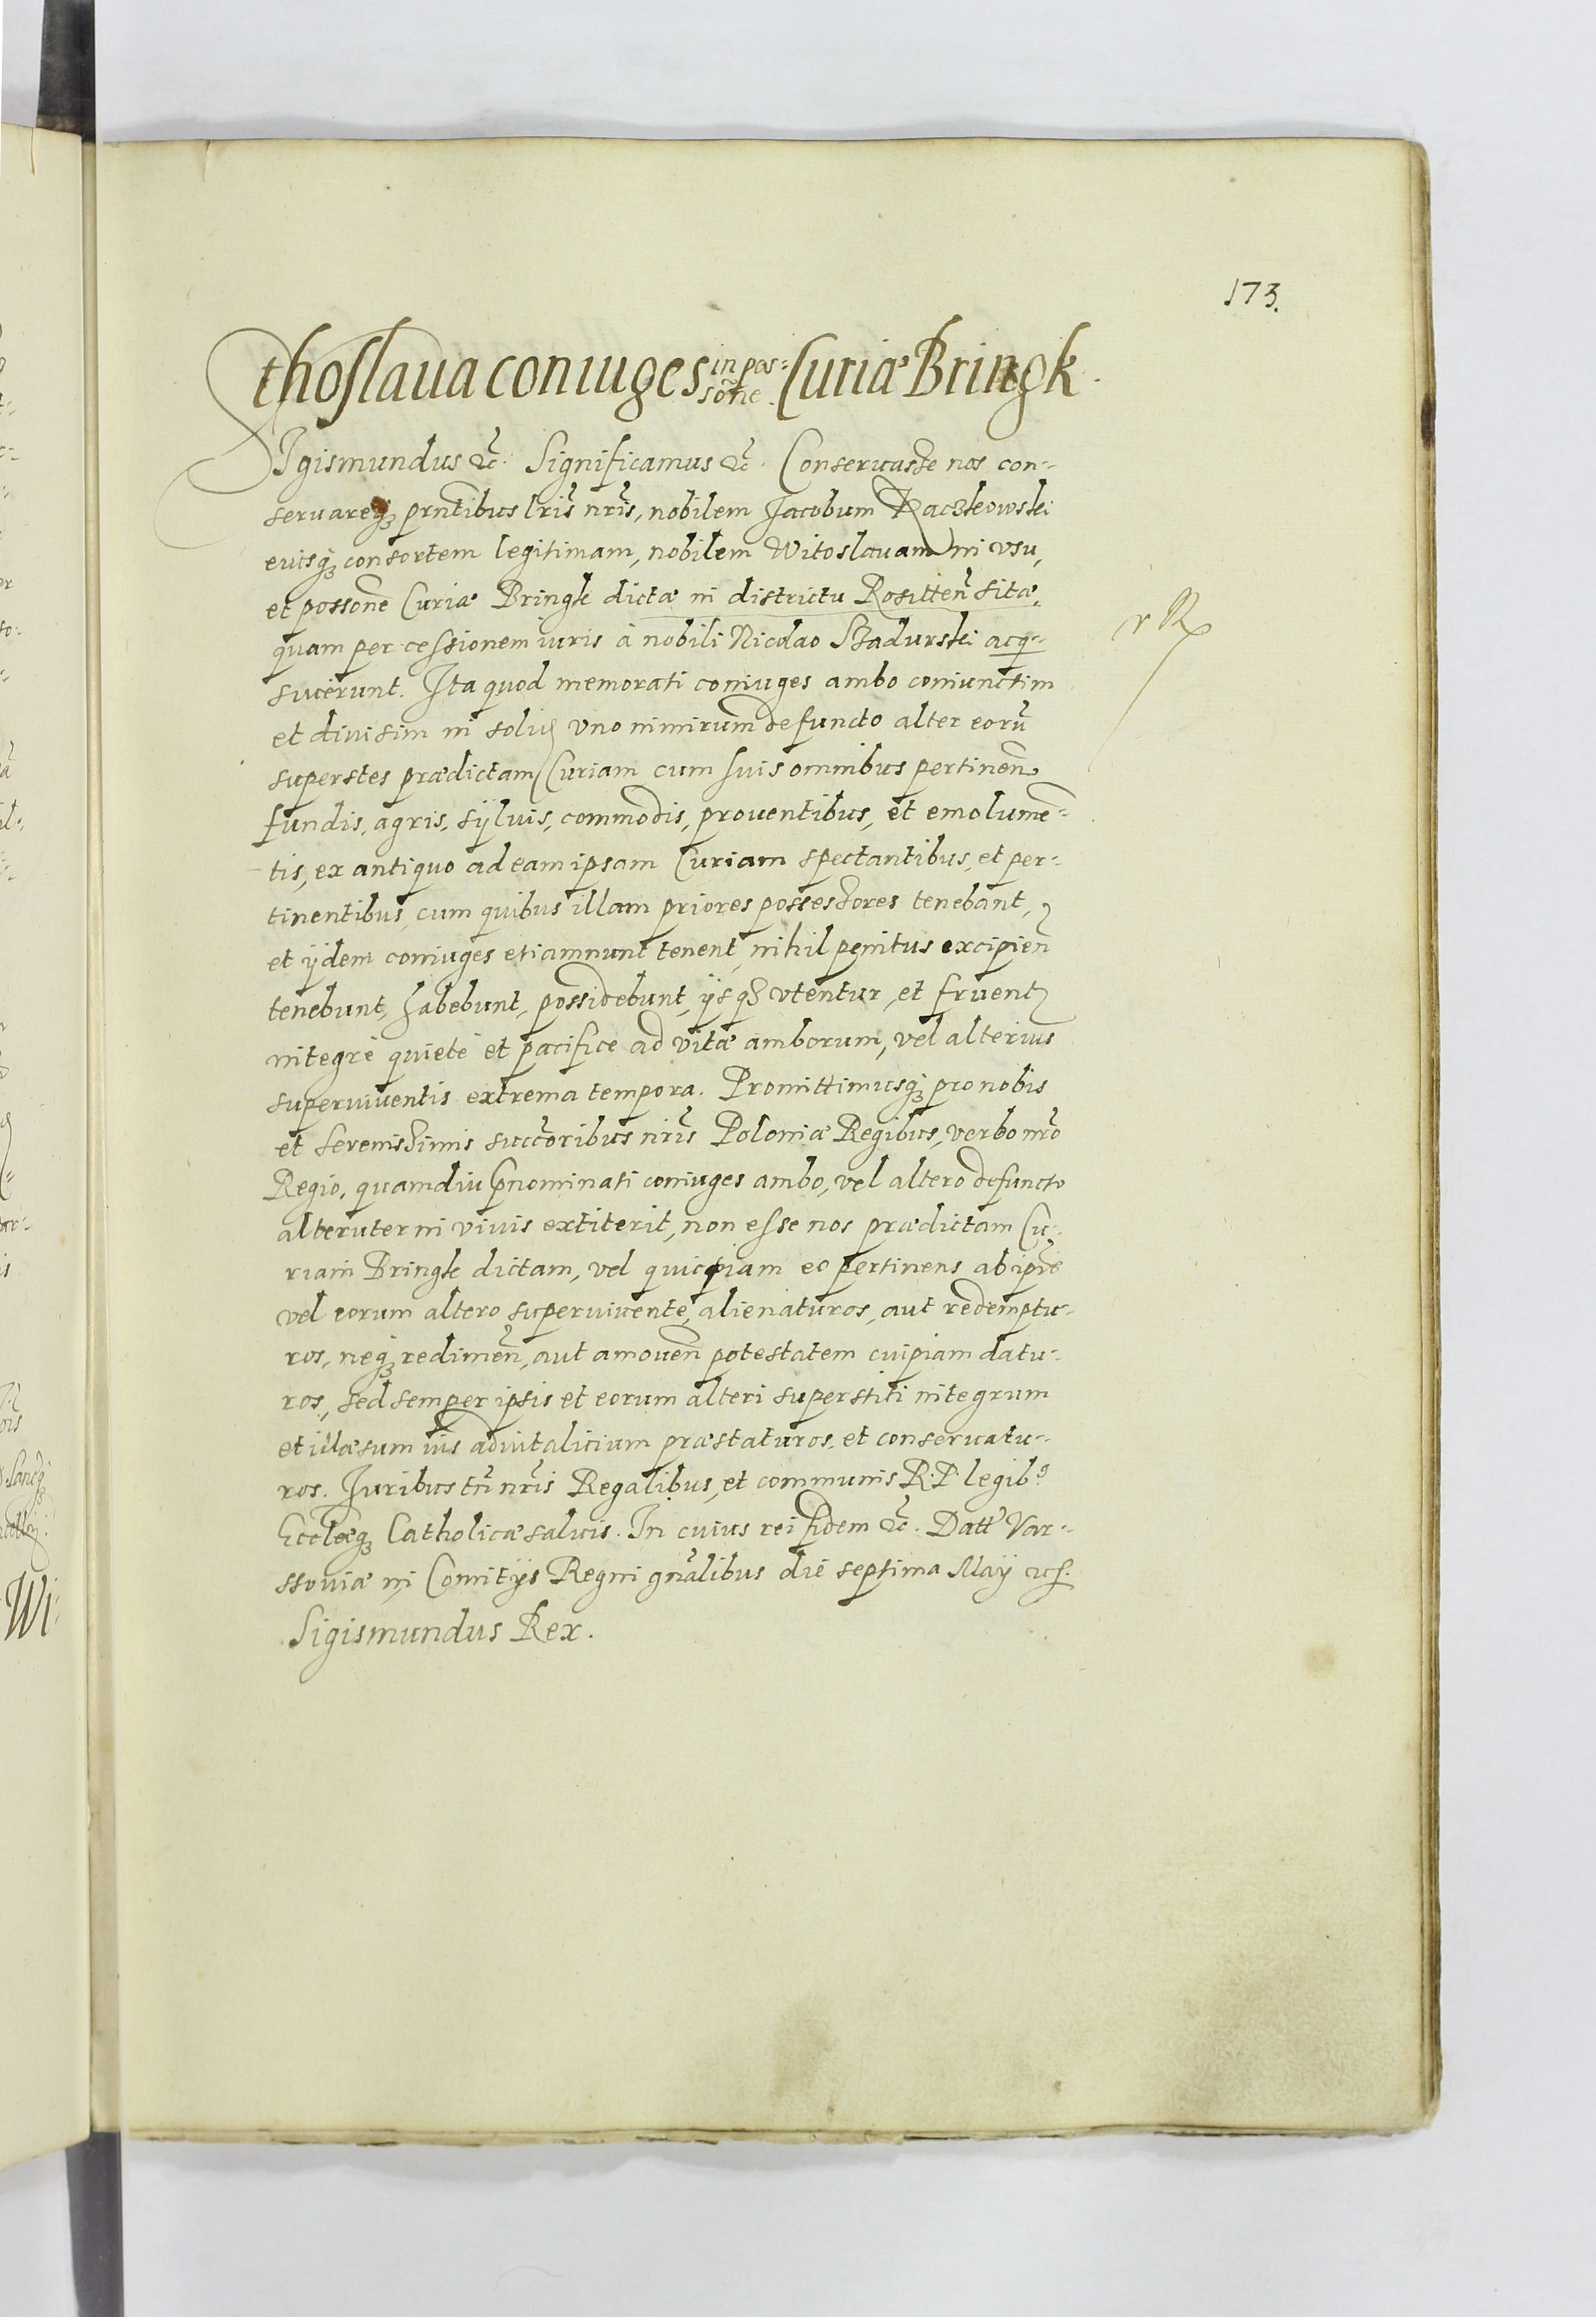 173.
thoslaua coniuges in pos-
sone. Curiæ Bringk.
SIgismundus &c. Significamus &c. Conseruasse nos con-
seruareq; prntibus lris nris, nobilem Jacobum Raczkowski
eiusq; consortem legitimam, nobilem Witoslauam in vsu,
et possone Curiæ Bringk dictæ in districtu Rositten sitæ,
quam per cessionem iuris à nobili Nicolao Badurski acq-
siuerunt. Ita quod memorati coniuges ambo coniunctim
et diuisim in solid vno nimirum defuncto alter eorũ
superstes prædictam Curiam cum suis omnibus pertinen
fundis, agris, syluis, commodis, prouentibus, et emolumẽ-
tis, ex antiquo ad eam ipsam Curiam spectantibus, et per-
tinentibus, cum quibus illam priores possessores tenebant,
et ijdem coniuges etiamnunc tenent, nihil penitus excipien
tenebunt, habebunt, possidebunt, ijsq; vtentur, et fruent
integrè quietè et pacifice ad vitæ amborum, vel alterius
superuiuentis extrema tempora. Promittimusq; pro nobis
et serenissimis succoribus nris Poloniæ Regibus, verbo nro
Regio, quamdiu prnominati coniuges ambo, vel altero defuncto
alteruter in viuis extiterit, non esse nos prædictam Cu-
riam Bringk dictam, vel quicpiam eo pertinens ab ipis
vel eorum altero superuiuente, alienaturos, aut redemptu-
ros, neq; redimen, aut amouen potestatem cuipiam datu-
ros, sed semper ipsis et eorum alteri superstiti integrum
et illæsum ius aduitalicium præstaturos, et conseruatu-
ros. Juribus tn nris Regalibus, et communis R. P. legib9
Ecclæq; Catholicæ saluis. In cuius rei fidem &c. Datt Var-
ssouiæ in Comitijs Regni gnalibus die septima Maij
Sigismundus Rex.